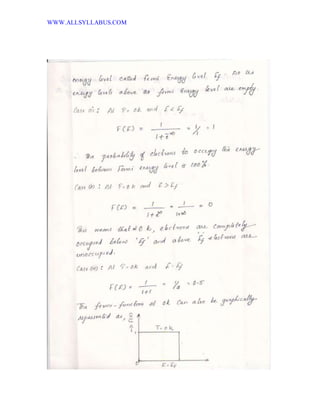 WWW.ALLSYLLABUS.COM
energy level called fermi Energy level Ef. All the
energy levels above the fermi energy level are empty.
Case (i): At T=0K and E<Ef
F(E) = 1/(1+e^-∞) = 1/1 = 1
∴ The probability of electrons to occupy the energy
level below fermi energy level is 100%.
Case (ii): At T=0K and E>Ef
F(E) = 1/(1+e^∞) = 1/∞ = 0
This means that at 0K, electrons are completely
occupied below 'Ef' and above Ef electrons are
unoccupied.
Case (iii): At T=0K and E=Ef
F(E) = 1/(1+1) = 1/2 = 0.5
The fermi-function at 0K can also be graphically
represented as,
F(E)
T=0K
1
0
E=Ef